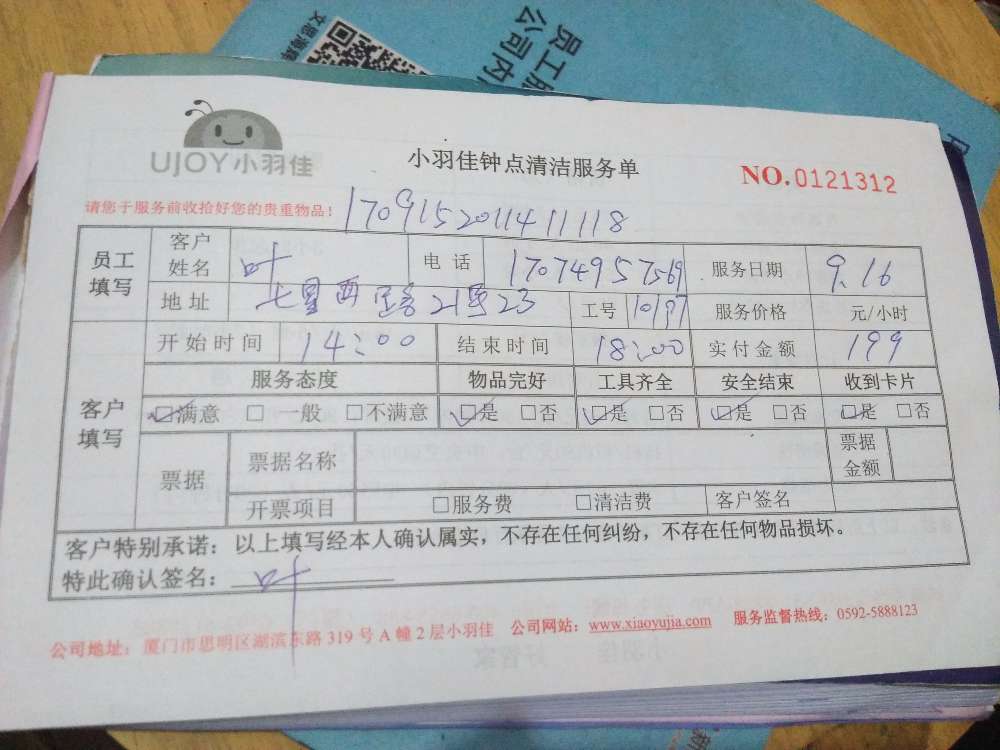 员工
公司内
UJOY小羽佳
小羽佳钟点清洁服务单
NO.0121312
请您于服务前收拾好您的贵重物品！
170915201141118
员工填写 客户姓名 叶 电话 17074957569 服务日期 9.16
地址 七星西路21号23 工号 10197 服务价格 元/小时
客户填写 开始时间 14:00 结束时间 18:00 实付金额 199
服务态度 物品完好 工具齐全 安全结束 收到卡片
☑满意 □一般 □不满意 ☑是 □否 ☑是 □否 ☑是 □否 ☑是 □否
票据 票据名称 票据金额
开票项目 □服务费 □清洁费 客户签名
客户特别承诺：以上填写经本人确认属实，不存在任何纠纷，不存在任何物品损坏。
特此确认签名：叶
公司地址：厦门市思明区湖滨东路319号A幢2层小羽佳 公司网站：www.xiaoyujia.com 服务监督热线：0592-5888123